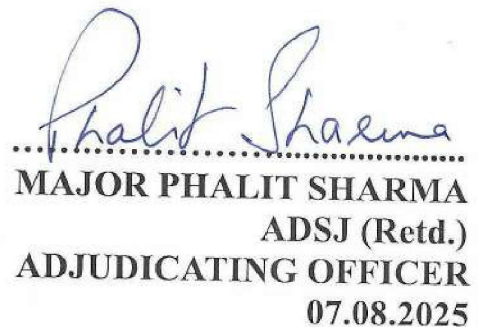 Phalit Sharma
MAJOR PHALIT SHARMA
ADSJ (Retd.)
ADJUDICATING OFFICER
07.08.2025